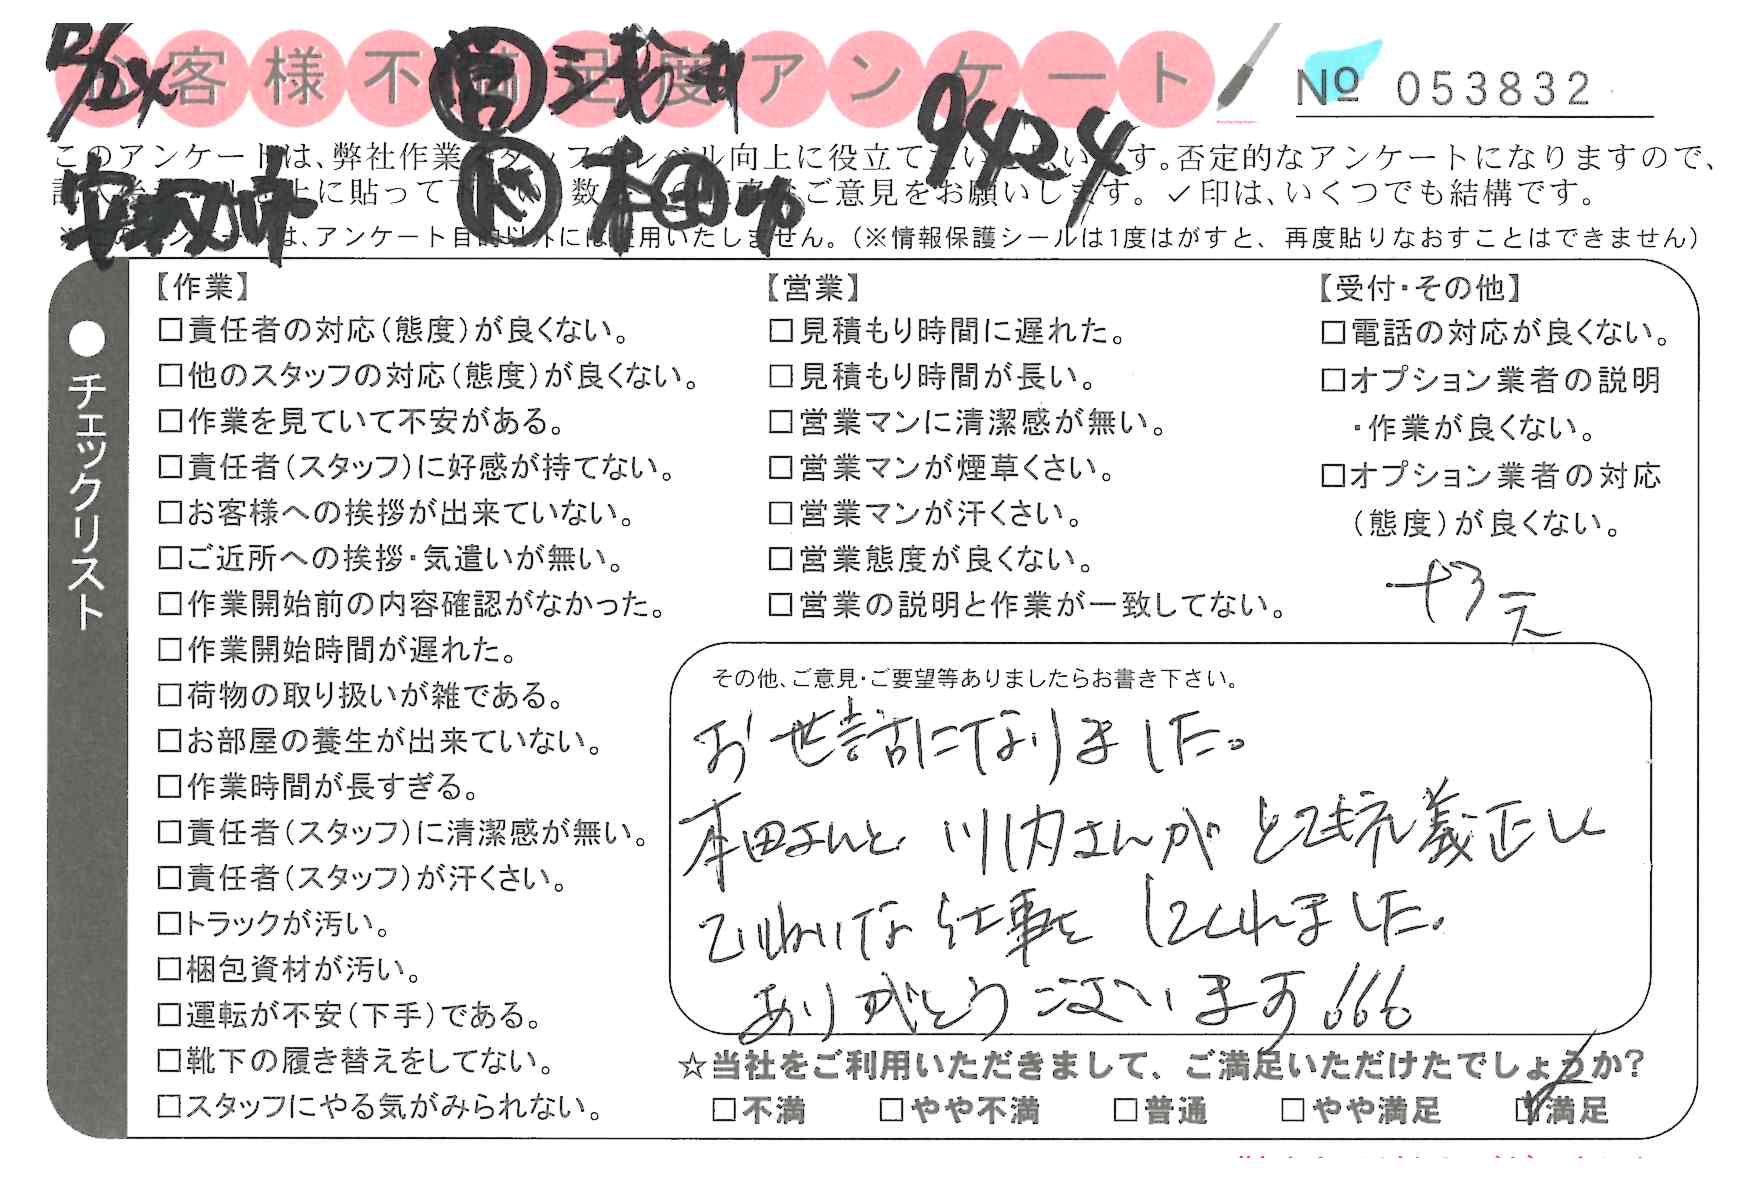 お客様不満足度アンケート
№ 053832
9424
このアンケートは、弊社作業スタッフのレベル向上に役立てたいと思います。否定的なアンケートになりますので、
に貼って下さい。数 ご意見をお願いします。✓印は、いくつでも結構です。
は、アンケート目的以外には使用いたしません。(※情報保護シールは1度はがすと、再度貼りなおすことはできません)
●チェックリスト
【作業】
□責任者の対応(態度)が良くない。
□他のスタッフの対応(態度)が良くない。
□作業を見ていて不安がある。
□責任者(スタッフ)に好感が持てない。
□お客様への挨拶が出来ていない。
□ご近所への挨拶・気遣いが無い。
□作業開始前の内容確認がなかった。
□作業開始時間が遅れた。
□荷物の取り扱いが雑である。
□お部屋の養生が出来ていない。
□作業時間が長すぎる。
□責任者(スタッフ)に清潔感が無い。
□責任者(スタッフ)が汗くさい。
□トラックが汚い。
□梱包資材が汚い。
□運転が不安(下手)である。
□靴下の履き替えをしてない。
□スタッフにやる気がみられない。
【営業】
□見積もり時間に遅れた。
□見積もり時間が長い。
□営業マンに清潔感が無い。
□営業マンが煙草くさい。
□営業マンが汗くさい。
□営業態度が良くない。
□営業の説明と作業が一致してない。
【受付・その他】
□電話の対応が良くない。
□オプション業者の説明
・作業が良くない。
□オプション業者の対応
(態度)が良くない。
その他、ご意見・ご要望等ありましたらお書き下さい。
お世話になりました。
本田さんと 川内さんが とても礼義正しく
ていねいな 仕事を してくれました。
ありがとうございます!!!
☆当社をご利用いただきまして、ご満足いただけたでしょうか?
□不満 □やや不満 □普通 □やや満足 ☑満足